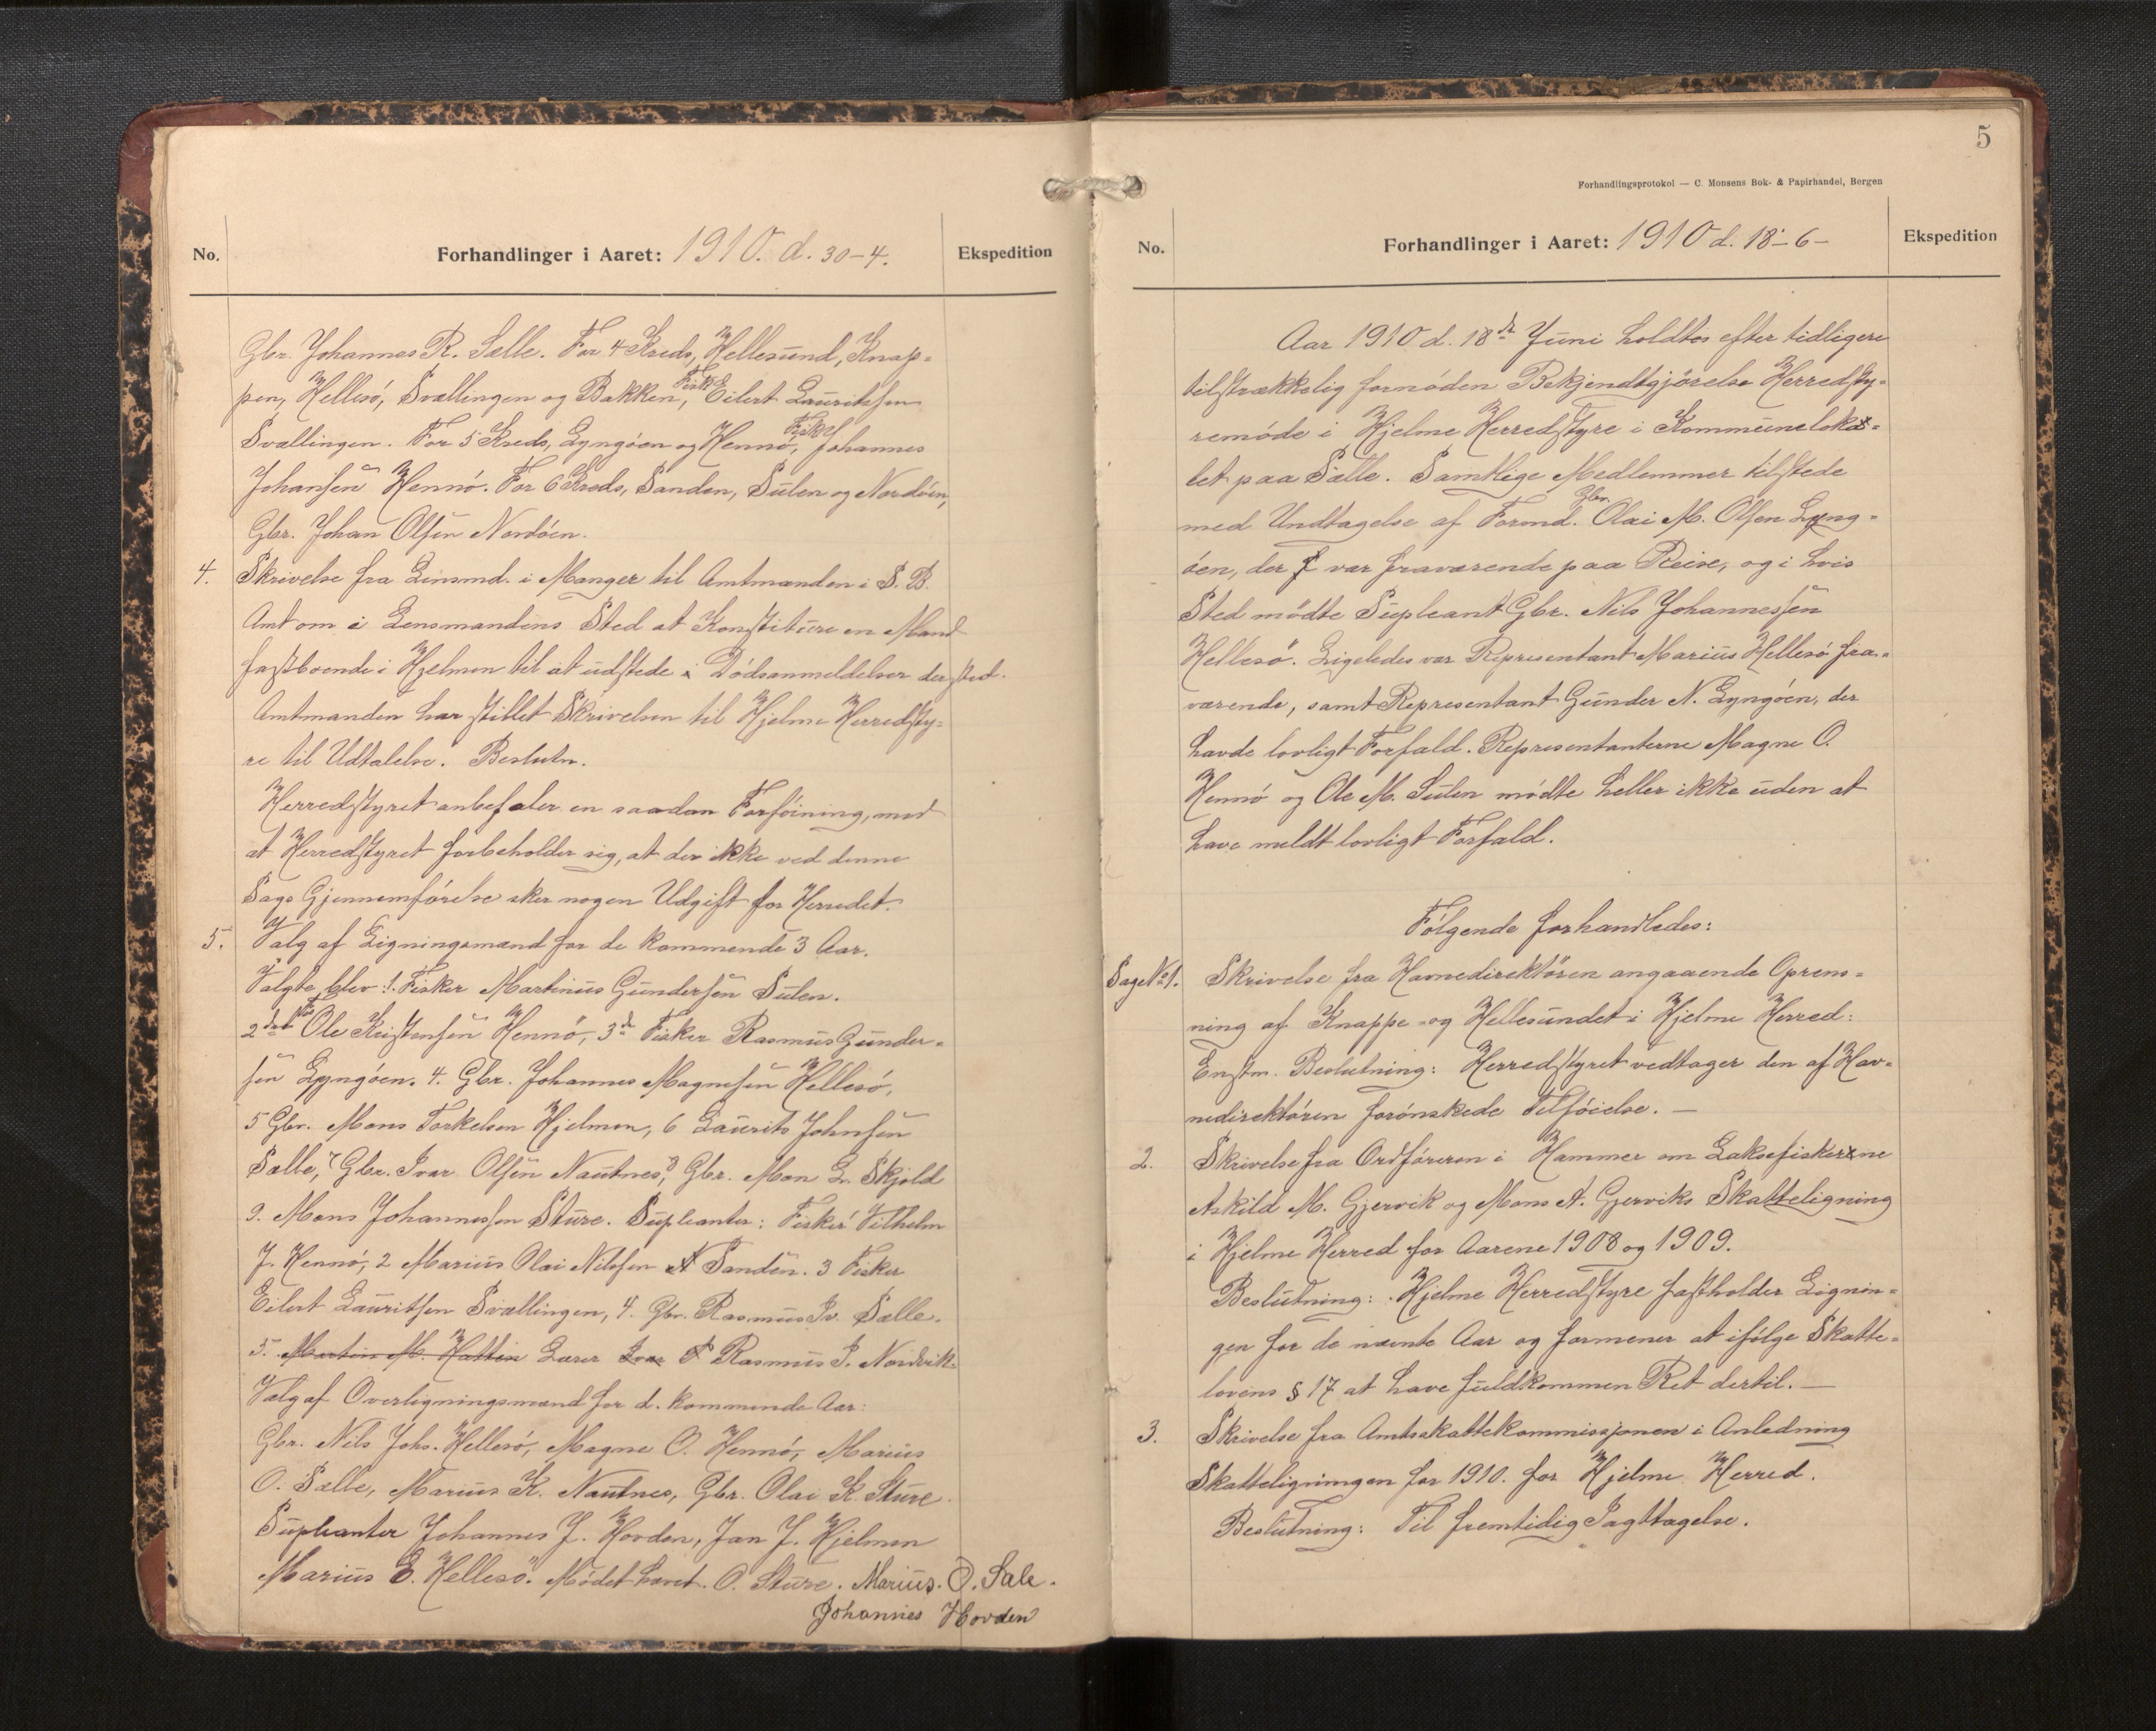 No.
Forhandlinger i Aaret: 1910. d. 30-4.
Ekspedition
Gbr. Johannes R. Sælle. For 4 Kreds, Hellesund, Knap-
pen, Hellesö, Svællingen og Bakken, Fisk. Eilert Lauritsen
Svællingen. For 5 Kreds, Lyngöen og Hennö, Fisker Johannes
Johansen Hennö. For 6 Kreds, Sanden, Sulen og Nordöen,
Gbr. Johan Olsen Nordöen.
4. Skrivelse fra Linsmd. i Manger til Amtmanden i S. B.
Amt om i Lensmandens Sted at Konstituere en Mand
fastboende i Hjelmen til at udstede Dödsanmeldelser dersted.
Amtmanden har stillet Skrivelsen til Hjelme Herredsty-
re til Udtalelse. Beslutn.
Herredstyret anbefaler en saadan Forföining, med
at Herredstyret forbeholder sig, at der ikke ved denne
Sags Gjennemförelse sker nogen Udgift for Herredet.
5. Valg af Ligningsmænd for de kommende 3 Aar.
Valgte blev: 1. Fisker Martinus Gundersen Sulen.
2den Fis Ole Kristensen Hennö, 3de Fisker Rasmus Gunder-
sen Lyngöen. 4. Gbr. Johannes Magnesen Hellesö,
5 Gbr. Mons Torkelsen Hjelmen, 6 Laurits Johnsen
Sælle, 7 Gbr. Ivar Olsen Nautnes, 8 Gbr. Mon L. Skjold
9. Mons Johannessen Sture. Supleanter: Fisker Vilhelm
J. Hennö, 2 Marius Olai Nilssen Sanden. 3 Fisker
Eilert Lauritsen Svællingen, 4. Gbr. Rasmus Iv. Sælle.
5. Martin M. Hatten Lærer Ivar Rasmus S. Nordvik.
Valg af Overligningsmænd for d. kommende Aar:
Gbr. Nils Johs. Hellesö, Magne O. Hennö, Marius
O. Sælle, Marius K. Nautnes, Gbr. Olai K. Sture.
Supleanter Johannes J. Hovden, Jan J. Hjelmen
Marius E. Hellesö. Mödet hævet. O. Sture. Marius. O. Sale.
Johannes Hovden
5
Forhandlingsprotokol — C. Monsens Bok- & Papirhandel, Bergen
No.
Forhandlinger i Aaret: 1910 d. 18-6-
Ekspedition
Aar 1910 d. 18de Juni holdtes efter tidligere
tilstrækkelig fornöden Bekjendtgjörelse Herredsty-
remöde i Hjelme Herredstyre i Kommuneloka-
let paa Sælle. Samtlige Medlemmer tilstede
med Undtagelse af Formd. Gbr. Olai M. Olsen Lyng-
öen, der var fraværende paa Reise, og i hvis
Sted mödte Supleant Gbr. Nils Johannessen
Hellesö. Ligeledes var Representant Marius Hellesö fra-
værende, samt Representant Gunder N. Lyngöen, der
havde lovligt Forfald. Representanterne Magne O.
Hennö og Ole M. Sulen mödte heller ikke uden at
have meldt lovligt Forfald.
Fölgende forhandledes:
Sage No 1. Skrivelse fra Havnedirektören angaaende Oprens-
ning af Knappe- og Hellesundet i Hjelme Herred:
Enstm. Beslutning: Herredstyret vedtager den af Hav-
nedirektören forönskede Tilföielse. —
2. Skrivelse fra Ordföreren i Hammer om Laksefiskerne
Askild M. Gjervik og Mons A. Gjerviks Skatteligning
i Hjelme Herred for Aarene 1908 og 1909.
Beslutning: Hjelme Herredstyre fastholder Lignin-
gen for de nævnte Aar og formener at ifölge Skatte-
lovens § 17 at have fuldkommen Ret dertil. —
3. Skrivelse fra Amtsskattekommissjonen i Anledning
Skatteligningen for 1910. for Hjelme Herred.
Beslutning: Til fremtidig Iagttagelse.